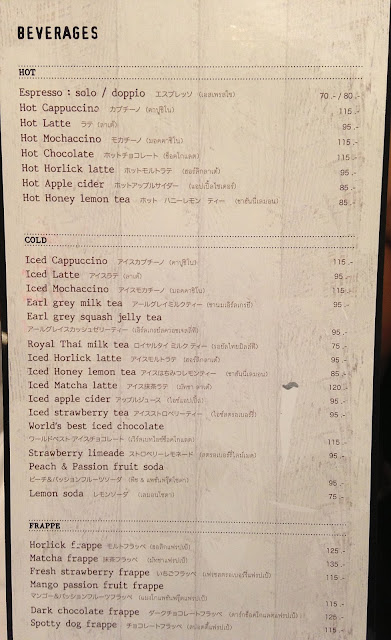 BEVERAGES
HOT
Espresso : solo / doppio エスプレッソ (เอสเพรสโซ) 70.-/ 80.-
Hot Cappuccino カプチーノ (คาปูชิโน) 115.-
Hot Latte ラテ (ลาเต้) 95.-
Hot Mochaccino モカチーノ (มอคคาชิโน) 115.-
Hot Chocolate ホットチョコレート (ช็อคโกแลต) 115.-
Hot Horlick latte ホットモルトラテ (ฮอร์ลิกลาเต้) 95.-
Hot Apple cider ホットアップルサイダー (แอปเปิ้ลไซเดอร์) 85.-
Hot Honey lemon tea ホット ハニーレモン ティー (ชาฮันนี่เลมอน) 85.-
COLD
Iced Cappuccino アイスカプチーノ (คาปูชิโน) 115.-
Iced Latte アイスラテ (ลาเต้) 95.-
Iced Mochaccino アイスモカチーノ (มอคคาชิโน) 115.-
Earl grey milk tea アールグレイミルクティー (ชานมเอิร์ลเกรย์) 95.-
Earl grey squash jelly tea
アールグレイスカッシュゼリーティー 95.-
Royal Thai milk tea ロイヤルタイ ミルク ティー (รอยัลไทยมิลค์ที) 75.-
Iced Horlick latte アイスモルトラテ (ฮอร์ลิกลาเต้) 95.-
Iced Honey lemon tea アイスはちみつレモンティー (ชาฮันนี่เลมอน) 85.-
Iced Matcha latte アイス抹茶ラテ (มัทชา ลาเต้) 120.-
Iced apple cider アップルジュース (ไอซ์แอปเปิ้ล) 95.-
Iced strawberry tea アイスストロベリーティー (ไอซ์สตรอเบอร์รี่) 95.-
World's best iced chocolate
ワールドベスト アイスチョコレート 115.-
Strawberry limeade ストロベリーレモネード (สตรอเบอร์รี่ไลม์เมด) 95.-
Peach & Passion fruit soda
ピーチ&パッションフルーツソーダ (พีช & แพชชั่นฟรุ๊ตโซดา) 95.-
Lemon soda レモンソーダ (เลมอนโซดา) 75.-
FRAPPE
Horlick frappe モルトフラッペ (ฮอลิกแฟรปเป้) 125.-
Matcha frappe 抹茶フラッペ (มัทชาแฟรปเป้) 135.-
Fresh strawberry frappe いちごフラッペ 115.-
Mango passion fruit frappe
マンゴー&パッションフルーツフラッペ 115.-
Dark chocolate frappe ダークチョコレートフラッペ (ดาร์กช็อคโกแลตแฟรปเป้) 125.-
Spotty dog frappe チョコレートフラッペ (สปอตตี้แฟรปเป้) 115.-